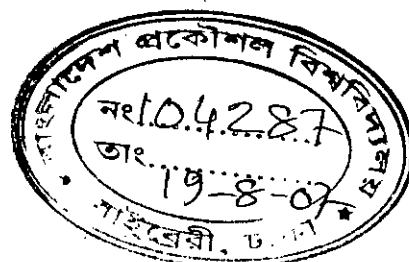 বাংলাদেশ প্রকৌশল বিশ্ববিদ্যালয়
নং 104287
তাং 19-8-07
লাইব্রেরী, ঢাকা